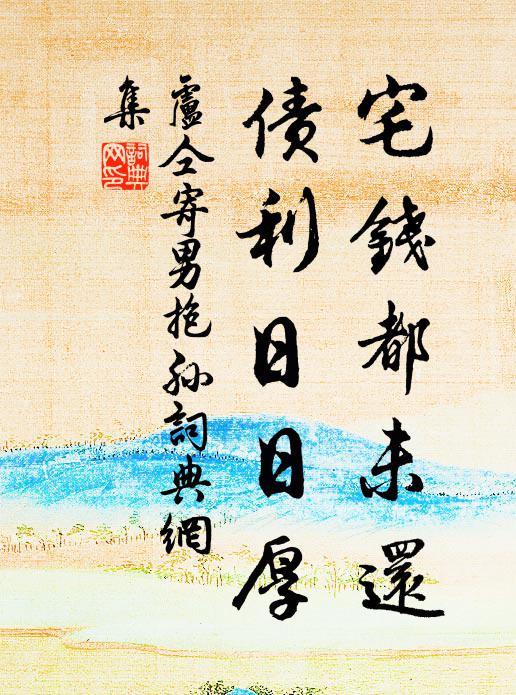 宅錢都未還
債利日日厚
盧仝寄男抱孫詞典網
集
詞典網印